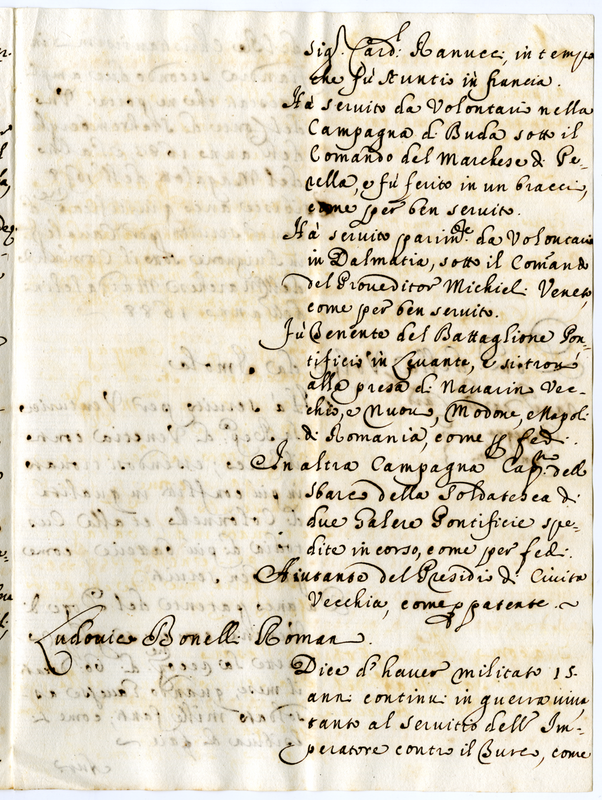 Sig.r Card.l Ranucci, in tempo
che fù Nuntio in francia.
Hà servito da Volontario nella
Campagna di Buda sotto il
Comando del Marchese di Pe-
rella, e fù ferito in un braccio,
come per ben servito.
Hà servito parim.te da Volontario
in Dalmatia, sotto il Comando
del Proveditor Michiel Veneto,
come per ben servito.
Fù Tenente del Battaglione Pon-
tificio in Levante, e si trovò
alla presa di Navarin Vec-
chio, e Nuovo, Modone, e Napoli
di Romania, come p fedi.
In altra Campagna Cap. dello
sbarco della Soldatesca di
due Galere Pontificie spe-
dite in corso, come per fedi.
Aiutante del Presidio di Civita
Vecchia, come p patente.
Ludovico Bonelli Romano.
Dice d'haver militato 15
anni continui in guerra viva
tanto al servitio dell' Im-
peratore contro il Turco, come